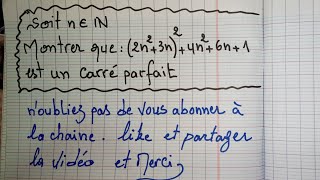 Soit n ∈ IN
Montrer que : (2n²+3n)²+4n²+6n+1
est un carré parfait
n'oubliez pas de vous abonner à
la chaine. like et partager
la vidéo et Merci